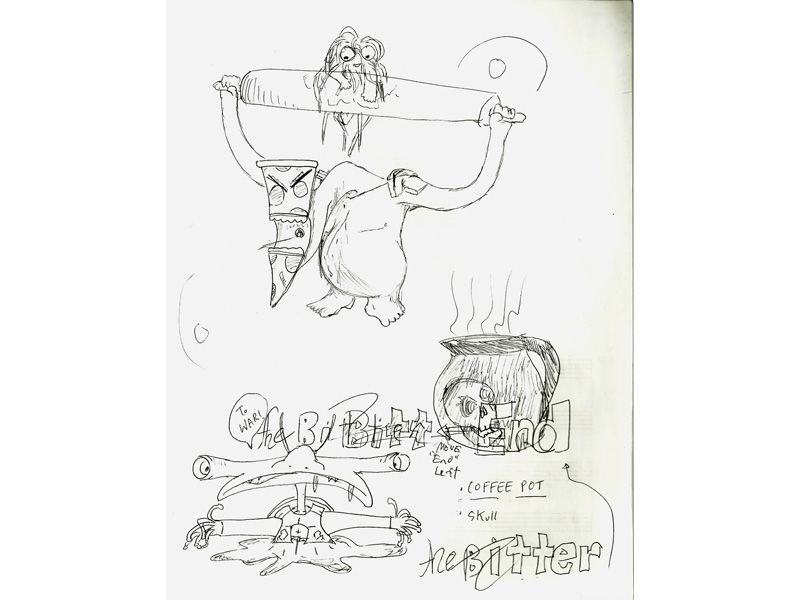 To
WAR!
the Bit Bitt End
Move
"End"
Left
• COFFEE POT
• Skull
the Bitter